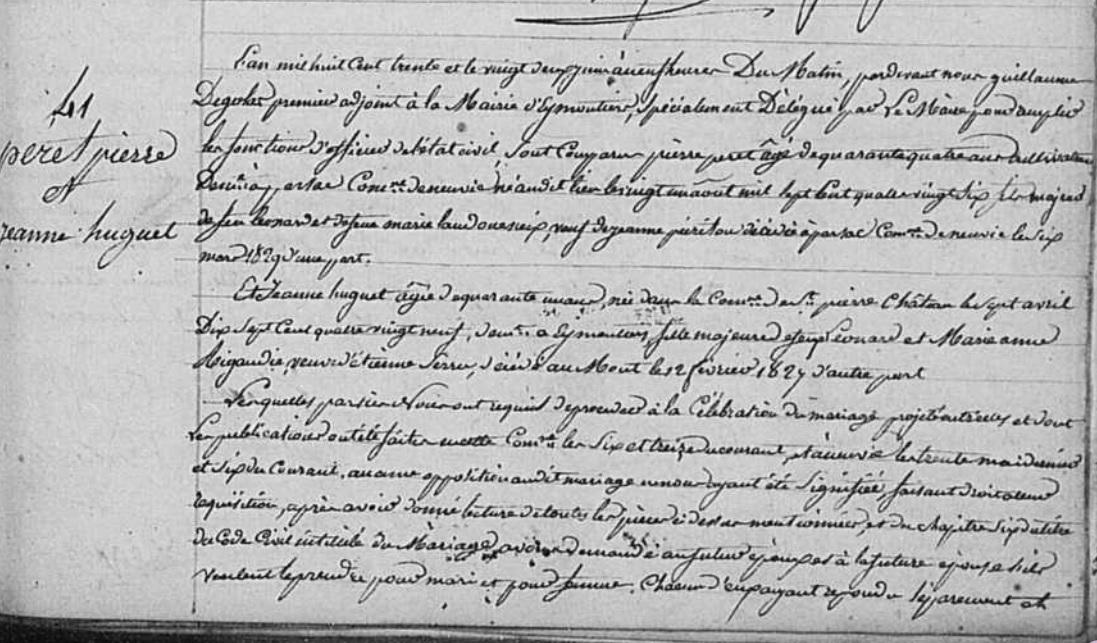 41
peret pierre
et
jeanne huguet
L'an mil huit cent trente et le vingt deux juin à neuf heures Du Matin, pardevant nous guillaume
Degolet premier adjoint à la Mairie d'Eymoutiers, spécialement Délégué par Le Maire pour remplir
les fonctions d'officier de l'état civil, sont comparu pierre peret âgé de quarante quatre ans cultivateur
Dem.t à parsac Com.ne de neuvic né audit lieu le vingt un aout mil sept cent quatre vingt six fils majeur
de feu Léonard et de feue marie veuf de jeanne décédée à parsac Com.ne de neuvic le six
mars 1829 d'une part.
Et Jeanne huguet âgée de quarante un ans, née dans la Com.ne de St. pierre Château le sept avril
Dix sept Cent quatre vingt neuf, dem.t a Eymoutiers, fille majeure de feu Léonard et Marie anne
Rigaudie, veuve d'étienne Serru, décédé au Mont le 12 février 1827 d'autre part
Lesquelles parties Nous ont requis de procéder à la Célébration du mariage projeté entr'elles et dont
Les publications ont été faites en cette Com.ne les Six et treize du courant, et à neuvic les trente mai dernier
et Six du Courant, aucune opposition audit mariage ne nous ayant été Signifiée, faisant droit à leur
requisition, après avoir donné lecture de toutes les pièces ci dessus mentionnées, et du chapitre Six du titre
du Code Civil intitulé du Mariage, avons demandé au futur époux et à la future épouse s'ils
veulent se prendre pour mari et pour femme. Chacun d'eux ayant répondu Séparément et